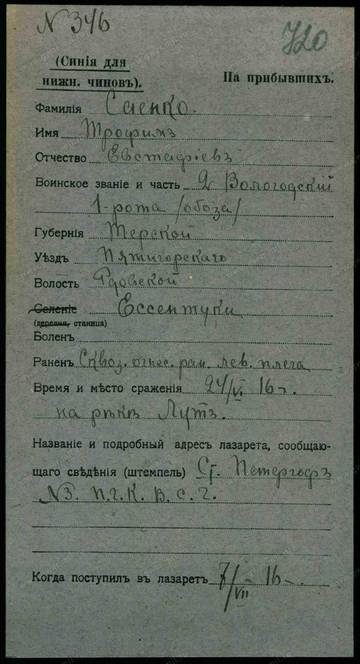 № 346
720
(Синія для
нижн. чиновъ).
На прибывшихъ.
Фамилія Саенко.
Имя Трофимъ
Отчество Евстафіевъ
Воинское званіе и часть 2 Вологодскій
1-рота /обоза/
Губернія Терской
Уѣздъ Пятигорскаго
Волость
Селеніе Ессентуки
(деревня, станица)
Боленъ
Раненъ Сквоз. огнес. ран. лев. плеча
Время и мѣсто сраженія 24/VI 16 г.
на рѣкѣ
Названіе и подробный адресъ лазарета, сообщаю-
щаго свѣдѣнія (штемпель) Ст. Петергофъ
№3. П. г. К. В. С. Г.
Когда поступилъ въ лазаретъ 7/VII – 16 г.